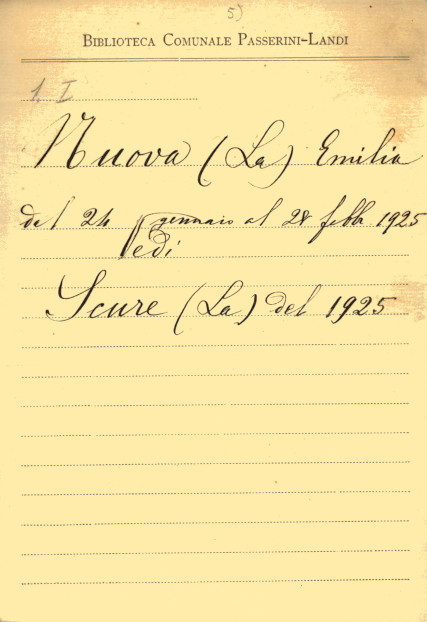 5)
BIBLIOTECA COMUNALE PASSERINI-LANDI
1. I
Nuova (La) Emilia
dal 24 gennaio al 28 febbr 1925
Vedi
Scure (La) del 1925